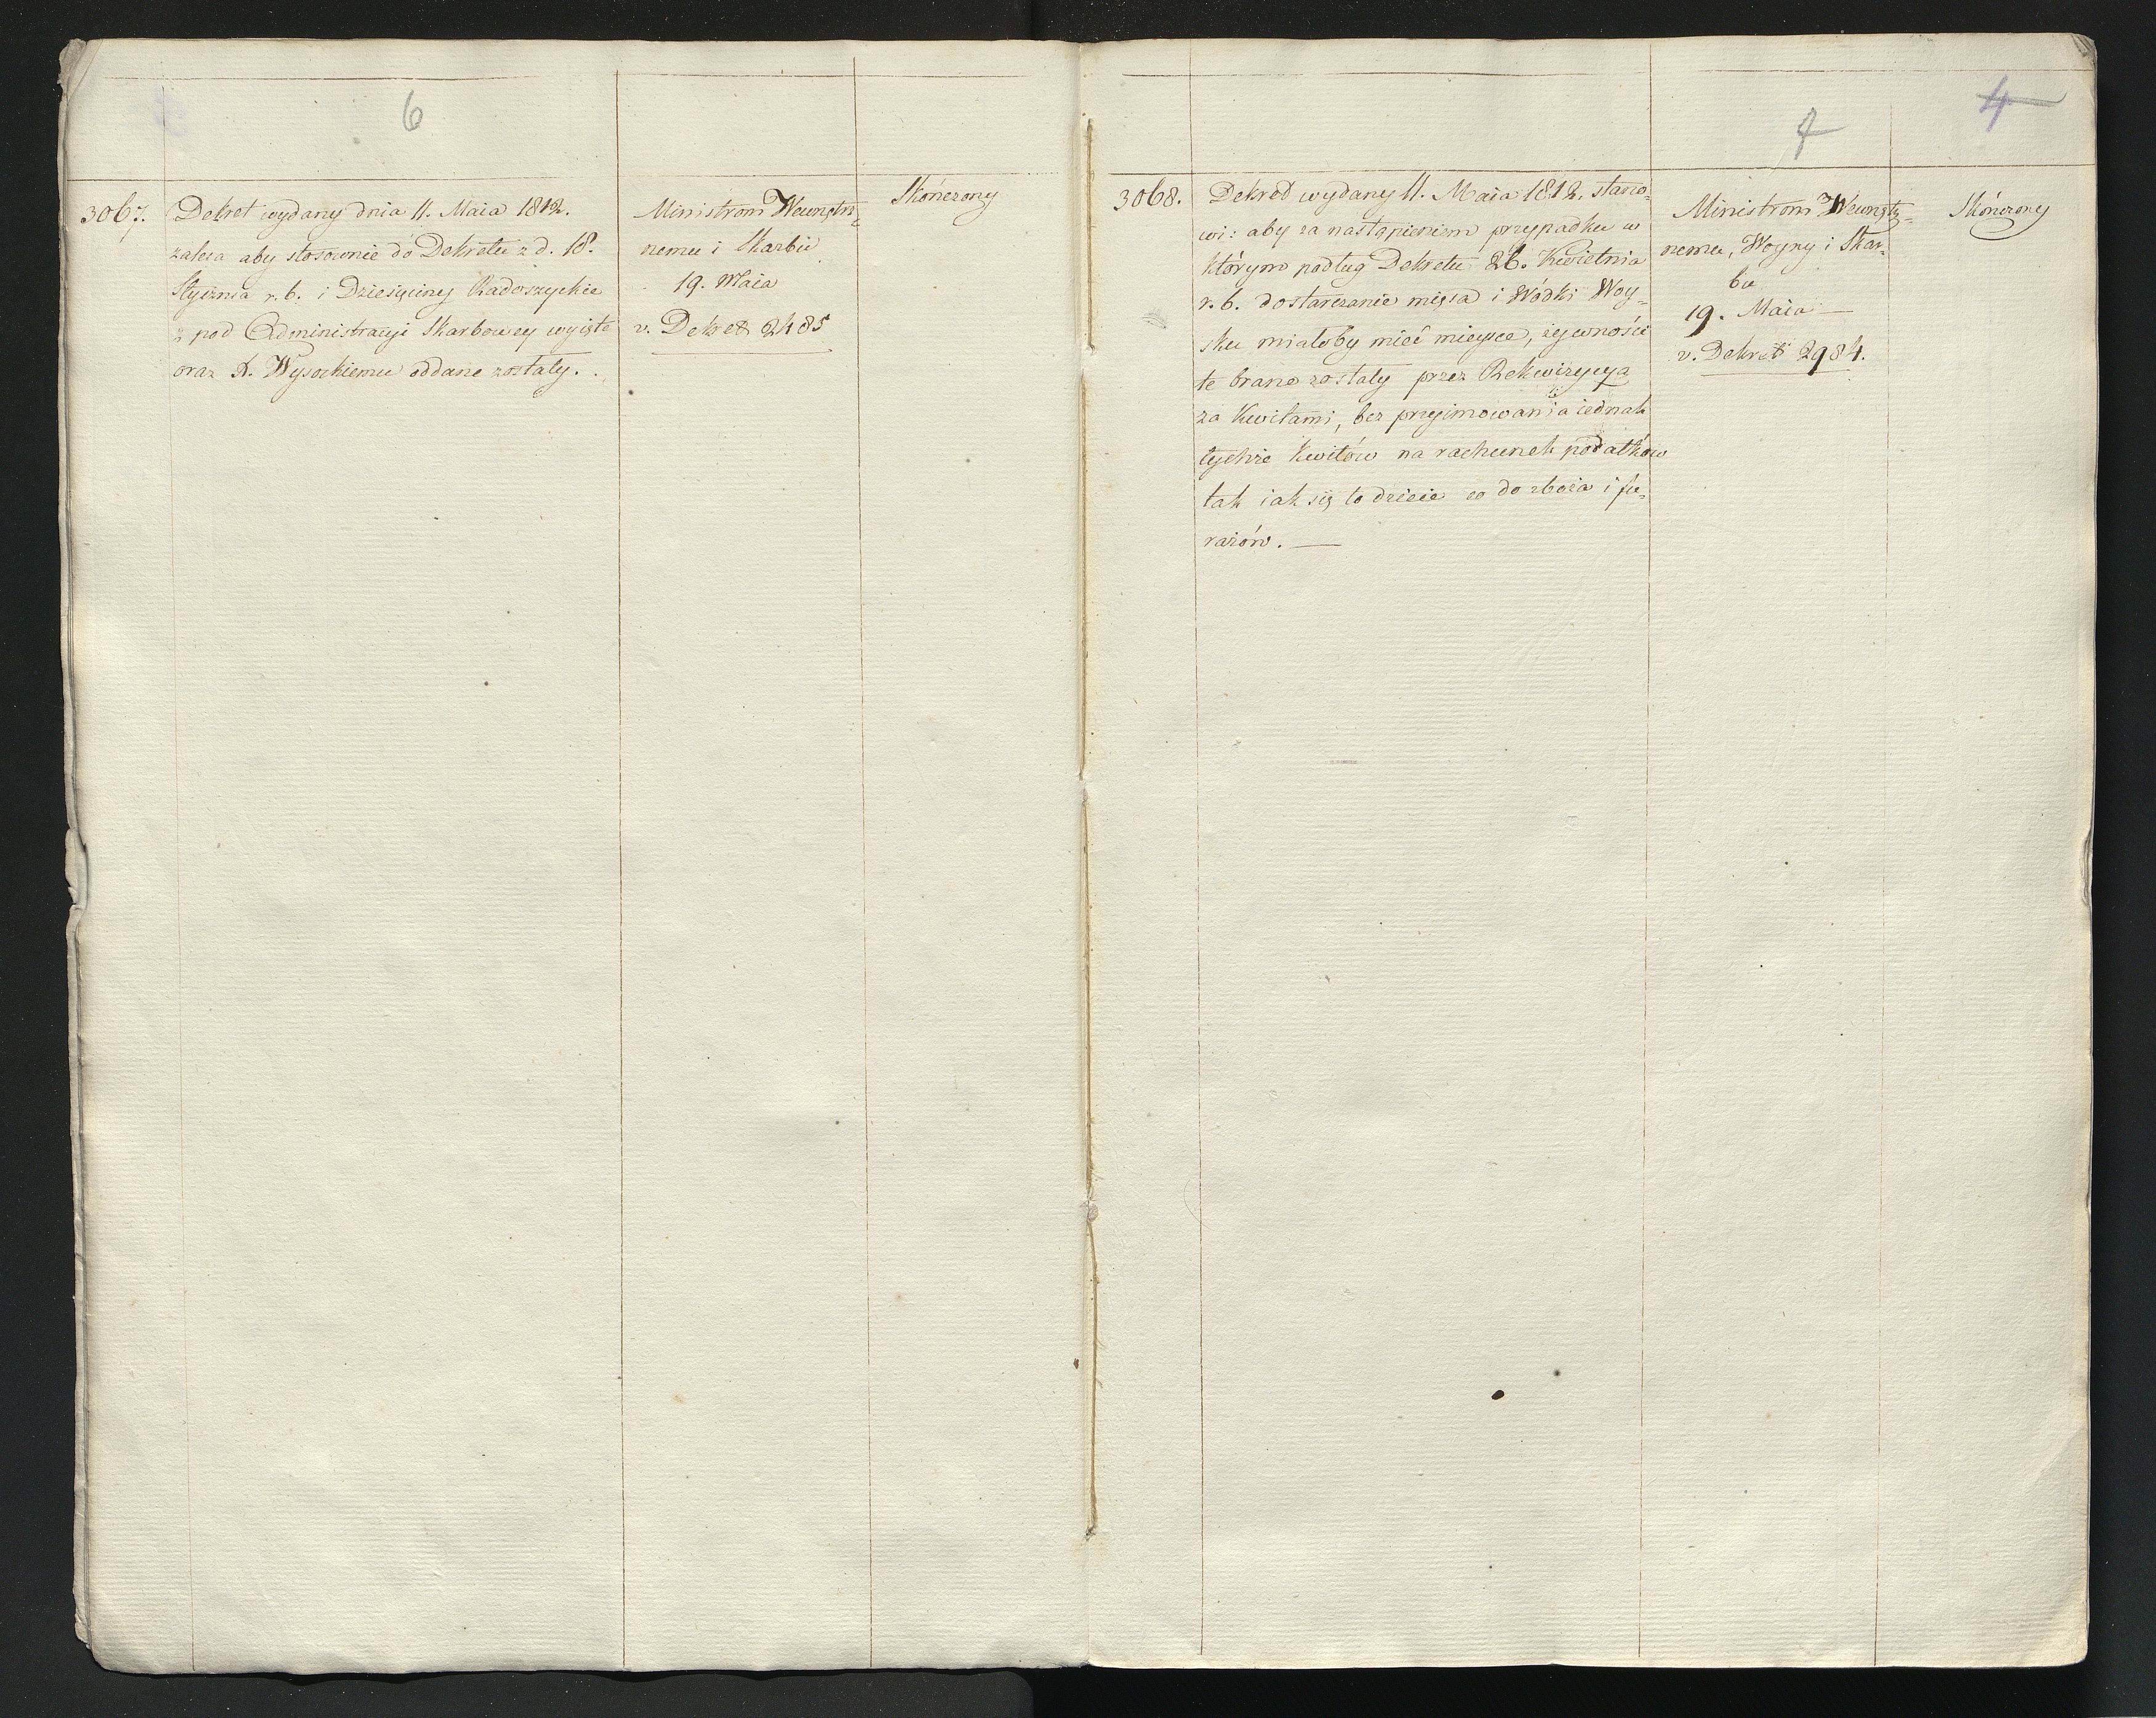 6
3067.
Dekret wydany dnia 11. Maia 1812.
zaleca aby stosownie do Dekretu z d. 18.
Stycznia r. b. i Dziesięciny Radoszyckie
z pod Administracyi Skarbowey wyięte
oraz X. Wysockiemu oddane zostały.
Ministrom Wewnętrz-
nemu i Skarbu
19. Maia
v. Dekret 2485
Skończony
4
7
3068.
Dekret wydany 11. Maia 1812. stano-
wi: aby za nastąpieniem przypadku w
którym podług Dekretu 26. Kwietnia
r. b. dostarczanie mięsa i Wódki Woy-
sku miałoby mieć mieysce, żywności
te brane zostały przez Rekwizycyą
za Kwitami, bez przyimowania iednak
tychże Kwitów na rachunek podatków
tak iak się to dzieie co do zboża i fu-
rażów. —
Ministrom Wewnętrz-
nemu, Woyny i Skar-
bu
19. Maia —
v. Dekret 2984.
Skończony